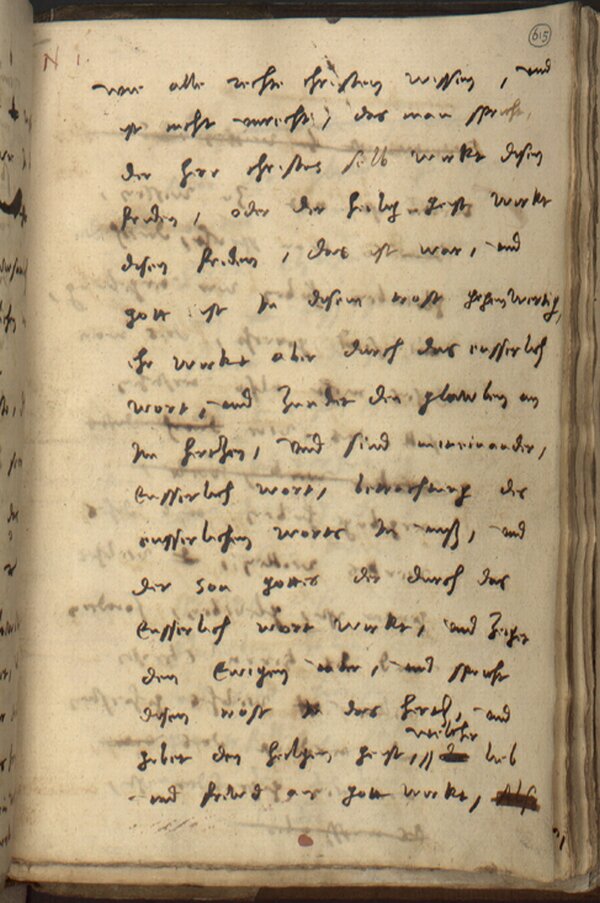 615
N 1.
wie alle rechte christen wissen, und
ist nicht unrecht, das man spricht,
der herr christus selb wirkt disen
friden, oder der heilig geist wirkt
disen friden, das ist war, und
gott ist in disem trost gegenwertig,
ehr wirkt aber durch das eusserlich
wort, und zundet den glawben an
im hertzen, und sind miteinander,
Eusserlich wort, betrachtung des
eusserlichen worts in uns, und
der Son gottes der durch das
Eusserlich wort wirkt, und zeiget
den Ewigen vater, und spricht
disen trost in das hertz, und
gibet den heilgen geist, welcher lieb
und freud an gott wirkt,